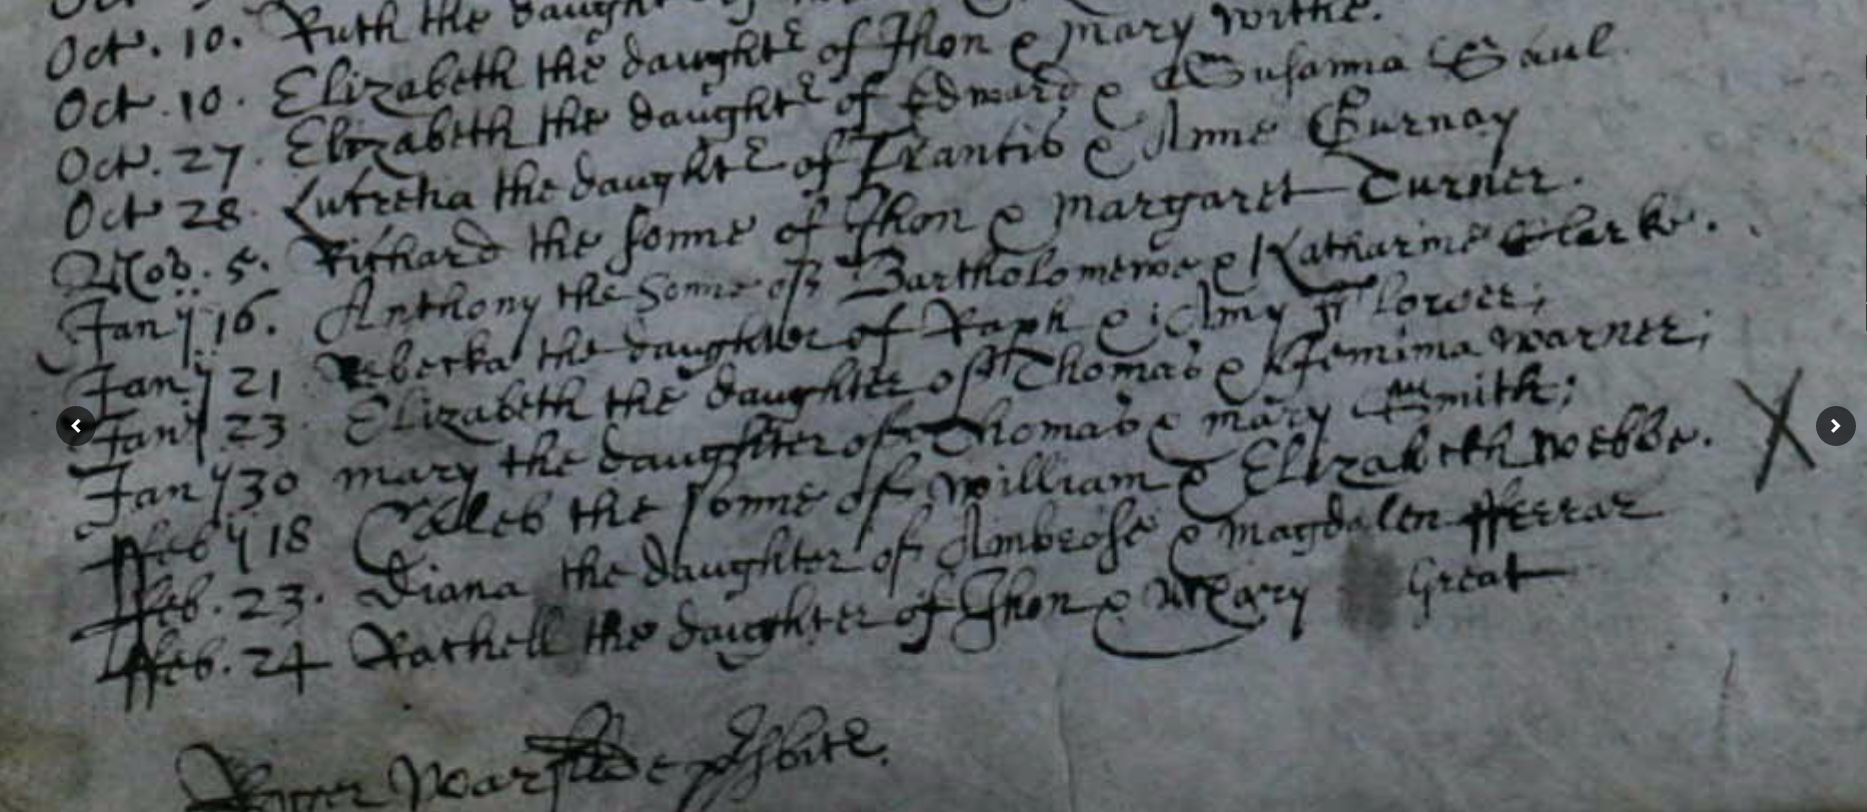 Oct. 10. Ruth the daught
Oct. 10. Elizabeth the daughte of Jhon & Mary Withe.
Oct. 27. Elizabeth the daughte of Edward & Susanna Saul
Oct 28. Lucretia the daughte of Francis & Anne Gurnay
Nov. 5. Richard the sonne of Jhon & Margaret Turner.
Jany 16. Anthony the Sonne of Bartholomewe & Katharine Clarke.
Jany 21 Rebecka the daughter of Raph & Amy fflower;
Jany 23 Elizabeth the daughter of Thomas & Jemima Warner;
Jany 30 Mary the daughter of Thomas & Mary Smith;
ffeby 18 Caleb the sonne of William & Elizabeth Webbe.
ffeb. 23. Diana the daughter of Ambrose & Magdalen fferrar
ffeb. 24 Rachell the daughter of Jhon & Mary Great